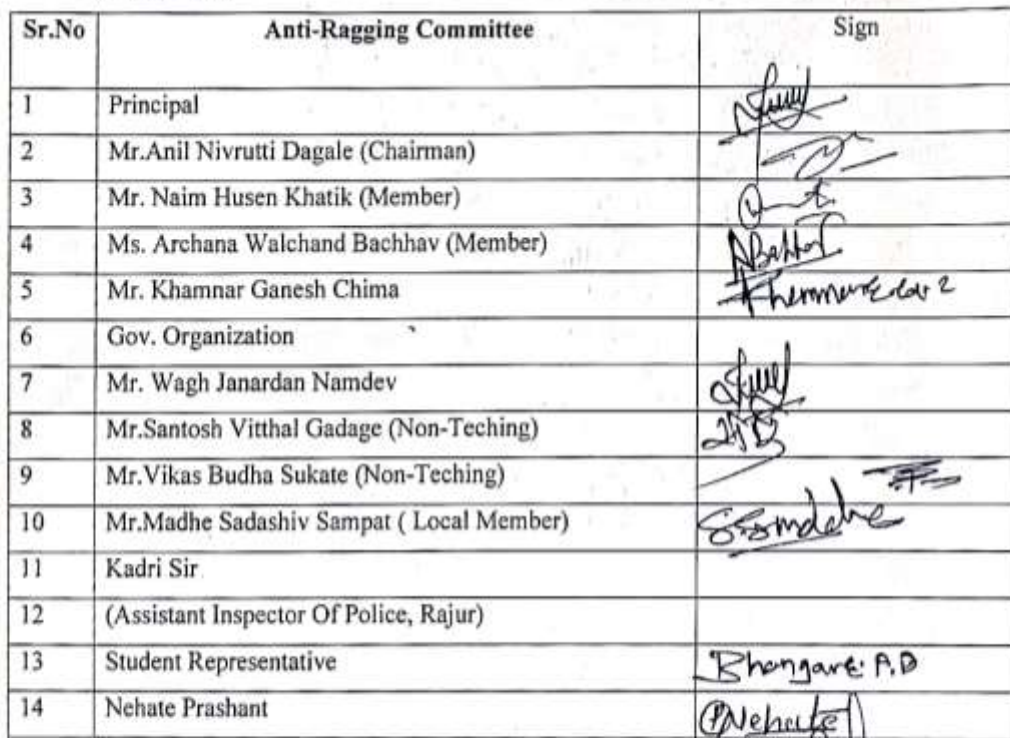 Sr.No Anti-Ragging Committee Sign
1 Principal
2 Mr.Anil Nivrutti Dagale (Chairman)
3 Mr. Naim Husen Khatik (Member)
4 Ms. Archana Walchand Bachhav (Member)
5 Mr. Khamnar Ganesh Chima
6 Gov. Organization
7 Mr. Wagh Janardan Namdev
8 Mr.Santosh Vitthal Gadage (Non-Teching)
9 Mr.Vikas Budha Sukate (Non-Teching)
10 Mr.Madhe Sadashiv Sampat ( Local Member)
11 Kadri Sir
12 (Assistant Inspector Of Police, Rajur)
13 Student Representative Bhangare A.D
14 Nehate Prashant PNehate